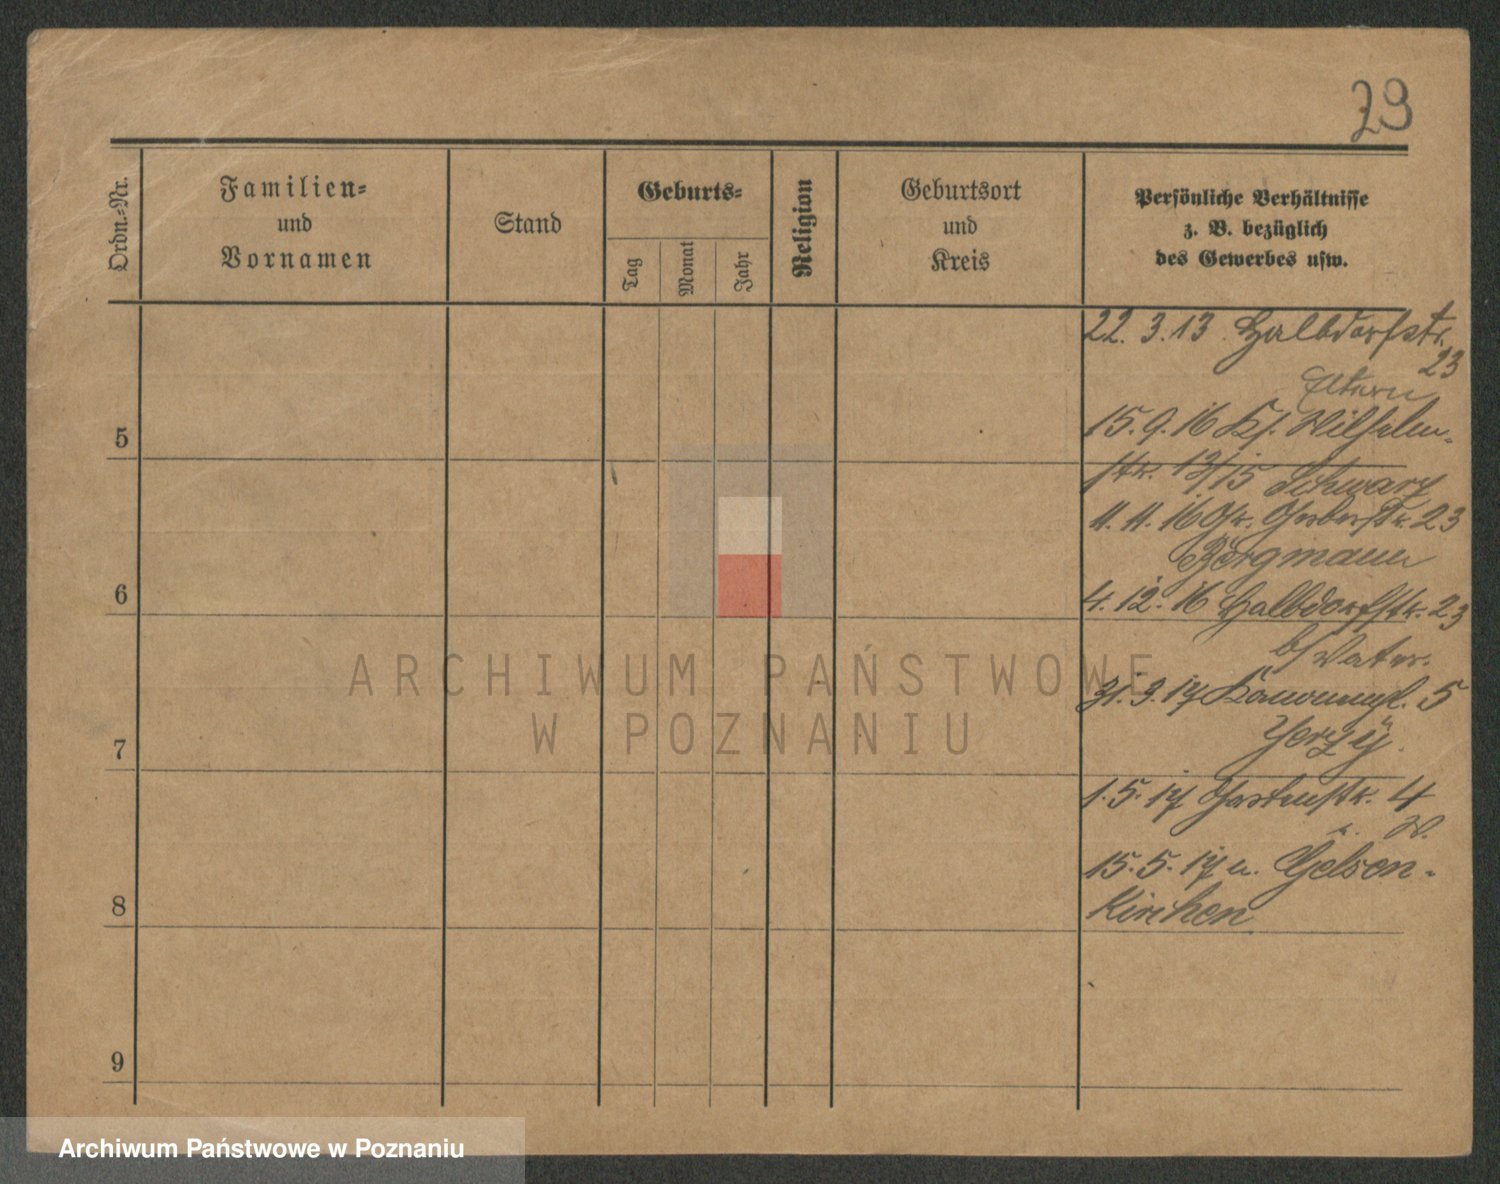 29
Ordn.=Nr.
Familien=
und
Vornamen
Stand
Geburts=
Tag
Monat
Jahr
Religion
Geburtsort
und
Kreis
Persönliche Verhältnisse
z. B. bezüglich
des Gewerbes usw.
22. 3. 13 Halbdorfstr.
23
Eltern
5
15. 9. 16 Kl. Wilhelm-
str. 13/15 Schwarz
11. 11. 16 Gr. Gerberstr. 23
Bergmann
6
4. 12. 16 Halbdorfstr. 23
b/ Vater.
31. 3. 17 5
7
1. 5. 17 Gartenstr. 4
W.
15. 5. 17 n. Gelsen-
kirchen
8
9
ARCHIWUM PAŃSTWOWE
W POZNANIU
Archiwum Państwowe w Poznaniu